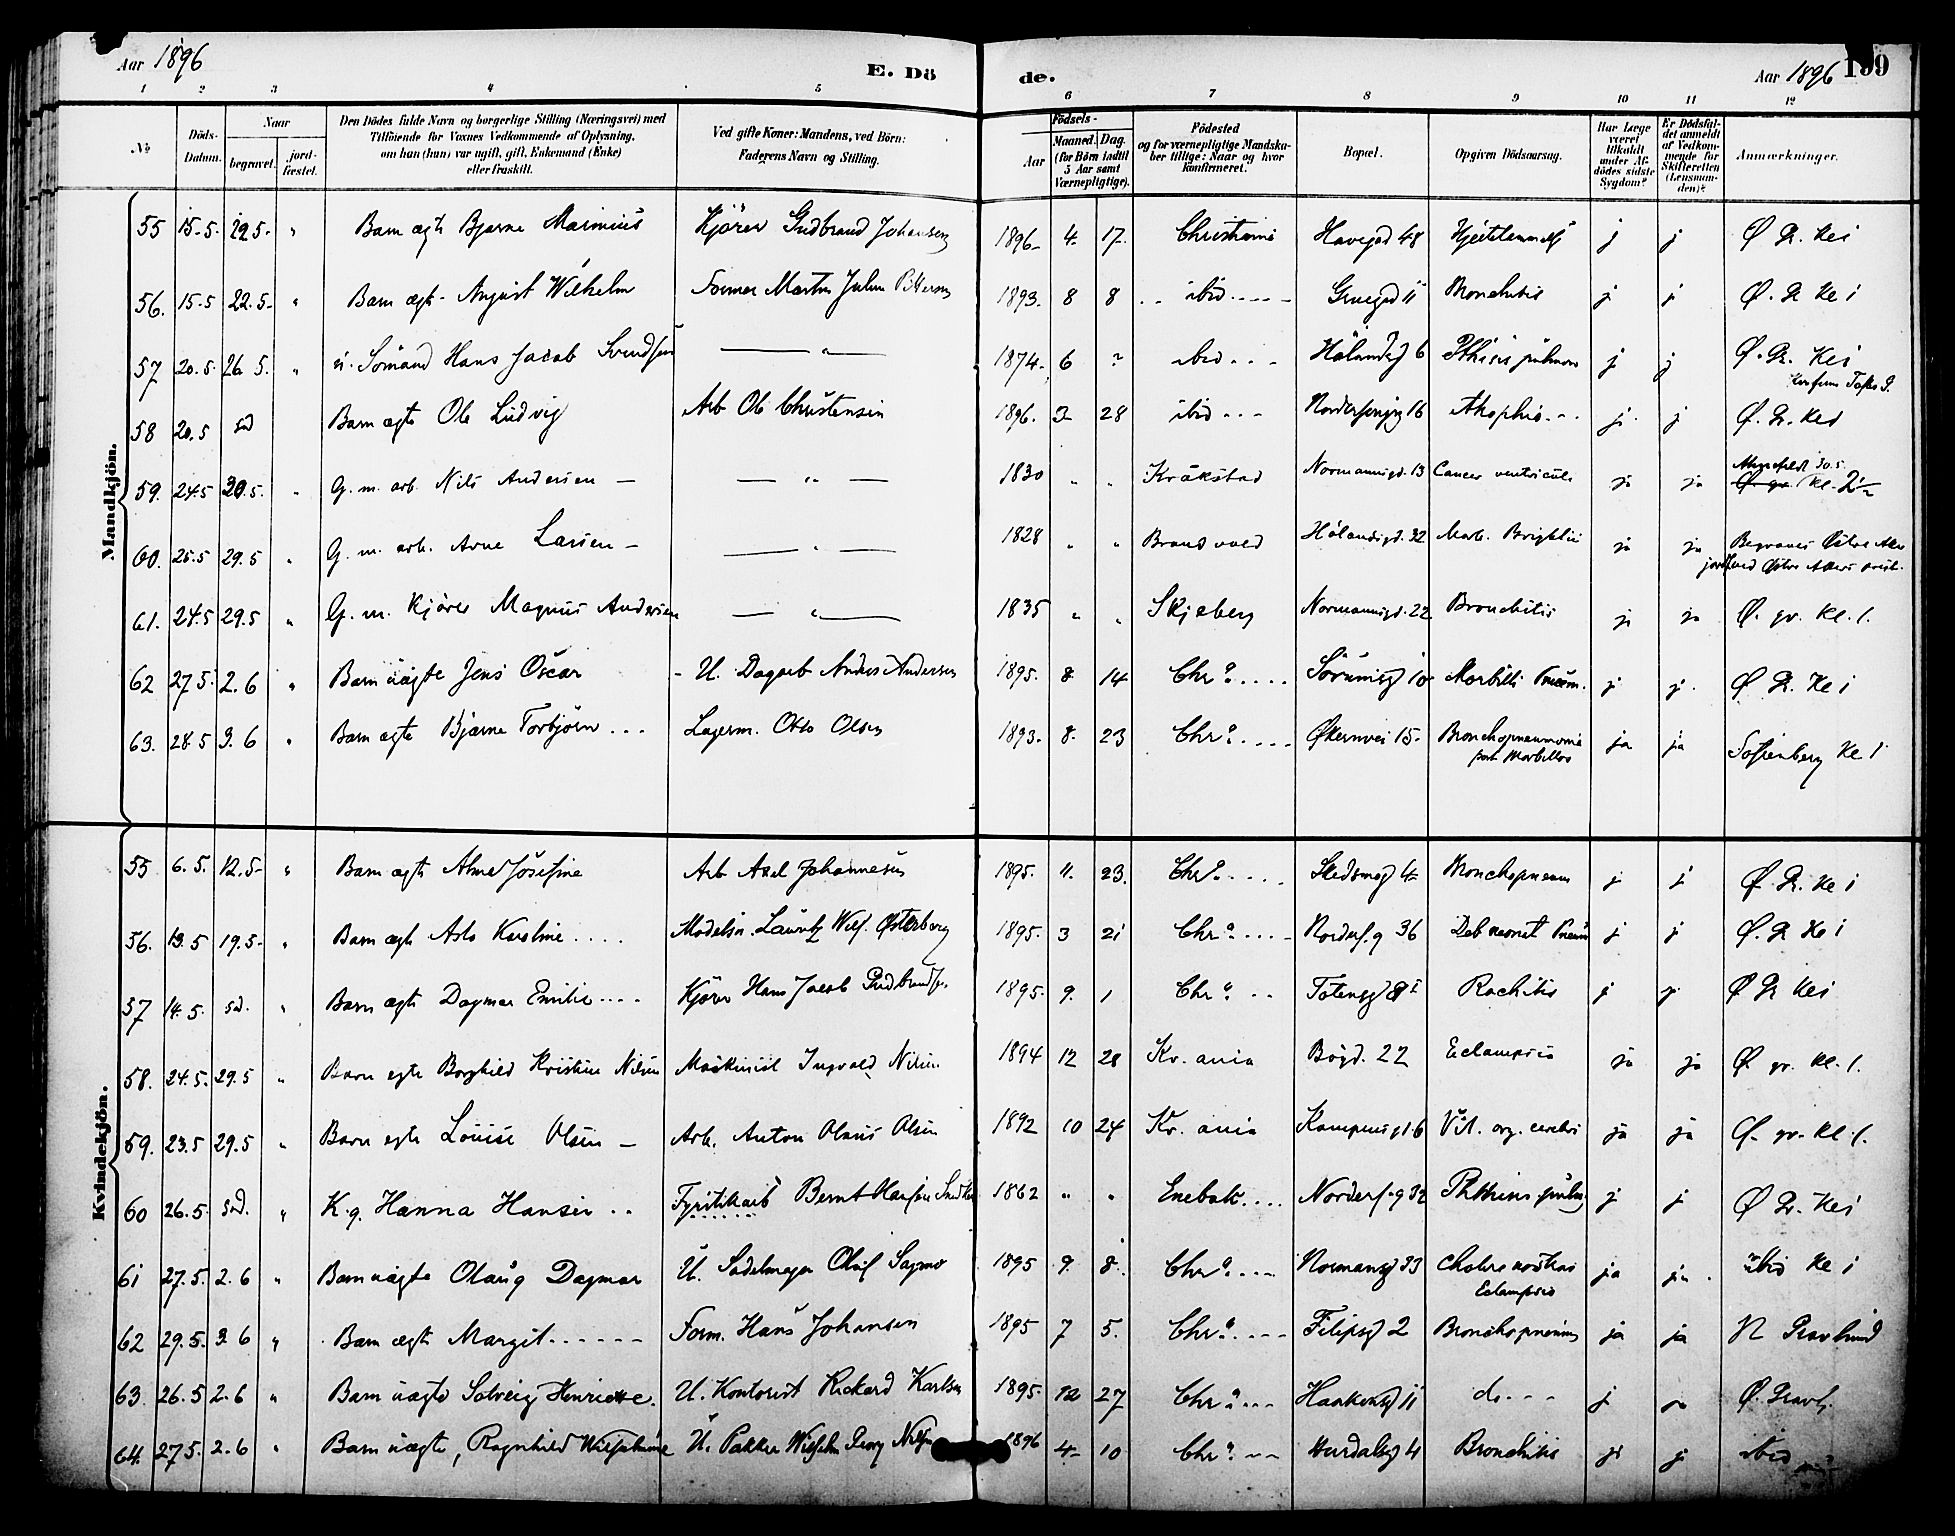 Aar 1896 E. Dö de. Aar 1896 199
1 2 3 4 5 6 7 8 9 10 11 12
No
Döds-Datum.
Naar
begravet.
jord-fæstet.
Den Dödes fulde Navn og borgerlige Stilling (Næringsvei) med
Tilföiende for Voxnes Vedkommende af Oplysning,
om han (hun) var ugift, gift, Enkemand (Enke)
eller fraskilt.
Ved gifte Koner: Mandens, ved Börn:
Faderens Navn og Stilling.
Födsels-
Aar
Maaned. Dag.
(for Börn indtil
5 Aar samt
Værnepligtige).
Födested
og for værnepligtige Mandska-
ber tillige: Naar og hvor
konfirmeret.
Bopæl.
Opgiven Dödsaarsag.
Har Læge
været
tilkaldt
under Af-
dödes sidste
Sygdom?
Er Dödsfal-
det anmeldt
af Vedkom-
mende for
Skifteretten
(Lensman-
den)?
Anmærkninger.
Mandkjön.
55 15-5. 22.5. " Barn ægte Bjarne Marinius Kjörer Gudbrand Johansen 1896 4. 17. Christiania Havegd 48 j j Ø Gr. Kl 1
56. 15.5 22.5. " Barn ægt. August Wilhelm Former Martin Julius Pettersen 1893. 8 8 ibid Gruegd 11 Bronchitis j j Ø. Gr Kl 1
57 20.5. 26.5. " u. Sömand Hans Jacob Svendsen " 1874. 6 ? ibid Hölandsg 6 Phthisis pulmon j j Ø. Gr. Kl 1
58 20.5 sd Barn ægte Ole Ludvig Arb Ole Christensen 1896. 3 28 ibid 16 Atrophia j j Ø. Gr. Kl 1
59. 24.5 30.5. " G. m. arb. Nils Andersen " 1830 " " Kråkstad Normannsgd. 13 Cancer ventriculi ja ja 30.5.
Ø. gr. Kl.
60. 25.5 29.5 " G. m. arb. Arne Larsen " 1828 " " Brandvold Hölandsgd. 32 Morb. Brightii ja ja Begraves Östre Aker
61. 24.5 29.5 " G. m. Kjörer Magnus Andersen " 1835 " " Skjeberg Normannsgd. 22 Bronchitis ja ja Ø. gr. Kl. 1.
62 27.5. 2.6 " Barn uægte Jens Oscar U. Dagarb Anders Andersen 1895. 8 14 Chra. Sörumsgd 10 Morbilli Pneum. j j. Ø. Gr. Kl 1
63. 28.5 3.6 " Barn ægte Bjarne Torbjörn Lagerm. Otto Olsen 1893. 8. 23 Chra. Økernvei 15 Bronchopneumonia
post Morbillos ja ja Sofienberg Kl 1
Kvindekjön.
55 6.5. 12.5 " Barn ægte Josefine Arb Axel Johannesen 1895. 11. 23. Chra. Skedsmogd 4 Bronchopneum j j Ø. Gr. Kl 1
56. 13.5 19.5. " Barn ægte Karoline Modelsn. Lauritz Wilh. Østerberg 1895. 3 21 Chra. Norderf. g 36 j j Ø. Gr Kl 1
57 14.5. sd. " Barn ægte Dagmar Emilie Kjörer Hans Jacob Gudbrandsen 1895. 9. 1 Chra. Totensgd 8 Rachitis j j Ø Gr Kl 1
58. 24.5. 29.5 " Barn egte Borghild Kristine Nilsen Maskinist Ingvald Nilsen 1894 12 28 Kr. ania Bögd. 22 Eclampsia ja ja Ø gr. Kl. 1.
59. 23.5 29.5 " Barn egte Louise Olsen Arb. Anton Olaus Olsen 1892 10 24 Kr. ania Kampensgd 6 Vit. org. cerebri ja ja Ø. gr. Kl. 1.
60 26.5. sd. " K. g. Hanna Hansen Fyrstikarb Bernt 1862 " " Enebak Norderf. g 32 Phthisis pulm. j j Ø Gr. Kl 1
61 27.5. 2.6 " Barn uægte Olaug Dagmar U. Sadelmager Oluf Sagmo 1895 9. 8. Chra. Normansgd 33 Cholera nostras
Eclampsia ja ja. ibid Kl 1
62 29.5. 3 6 " Barn ægte Margit Form. Hans Johansen 1895 7 5. Chra. Filipsgd 2 Bronchopneum ja ja N Gravlund
63. 26.5 2.6 " Barn uægte Solveig Henriette. U. Kontorist Rickard Karlsen 1895. 12 27 Chra. Haakonsgd 11 do j Ø. Gravl.
64. 27.5. 2.6 " Barn uægte, Ragnhild Wilhelmine U. Pakker Wilhelm Georg 1896 4 10 Chra. Hurdalsgd 4 Bronchitis j j ibid